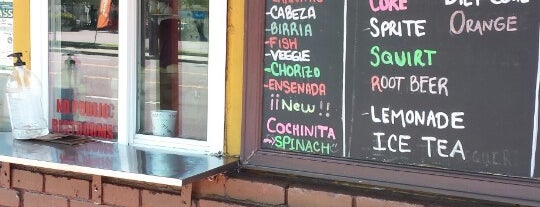 -CABEZA
-BIRRIA
-FISH
-VEGGIE
-CHORIZO
-ENSENADA
¡¡NEW!!
COCHINITA
SPINACH
COKE
-SPRITE
SQUIRT
ROOT BEER
-LEMONADE
ICE TEA
DIET COKE
ORANGE
NO PUBLIC
RESTROOMS